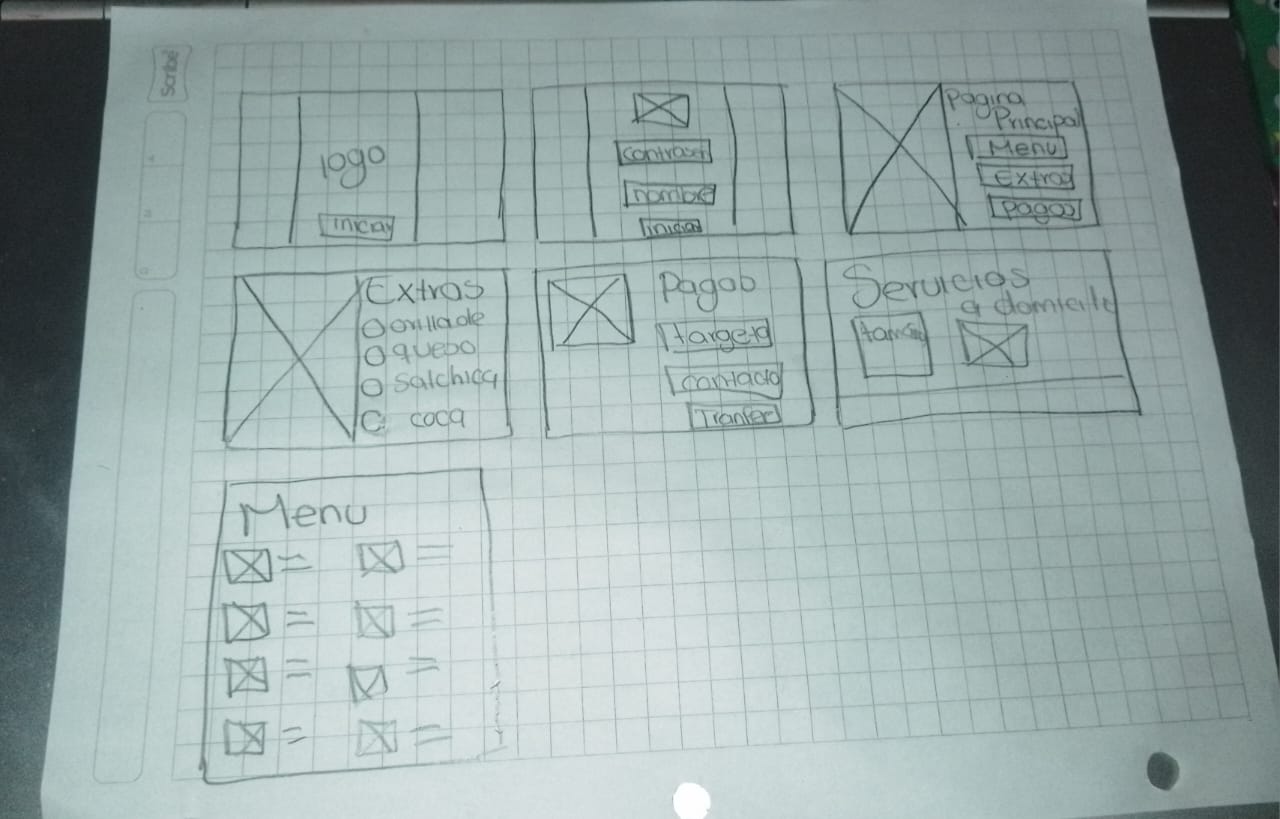 Scribe
logo
iniciar
contraseñ
nombre
iniciar
Pagina
Principal
Menu
Extras
Pagos
Extras
orillade
queso
Salchica
coca
Pagos
targeta
contacto
Tranfer
Servicios
a domicilio
tamaño
Menu